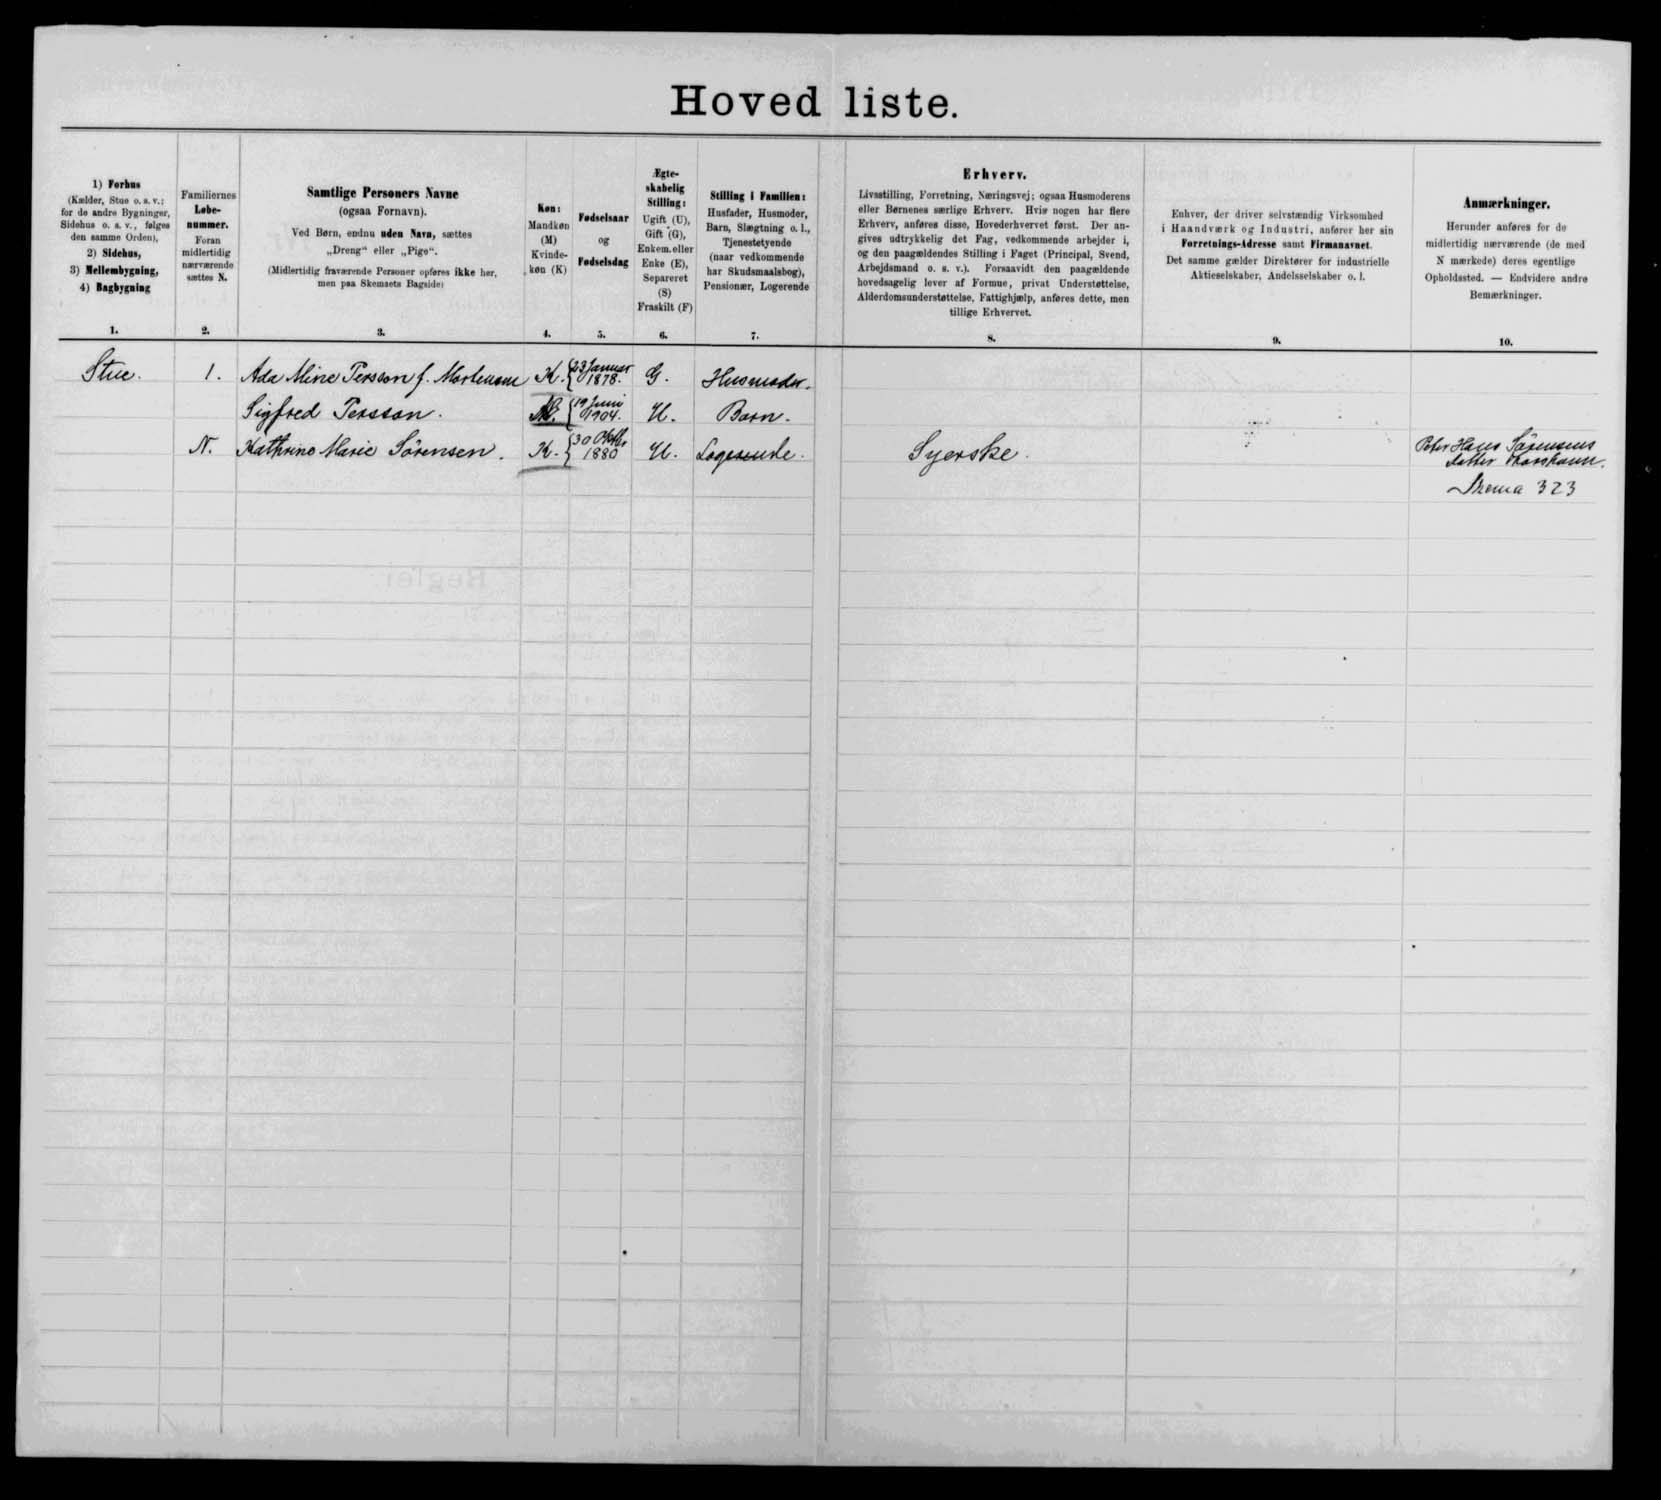 Hoved liste.
1) Forhus
(Kælder, Stue o. s. v.;
for de andre Bygninger,
Sidehus o. s. v., følges
den samme Orden),
2) Sidehus,
3) Mellembygning,
4) Bagbygning
1.
Familiernes
Løbe-
nummer.
Foran
midlertidig
nærværende
sættes N.
2.
Samtlige Personers Navne
(ogsaa Fornavn).
Ved Børn, endnu uden Navn, sættes
„Dreng“ eller „Pige“.
(Midlertidig fraværende Personer opføres ikke her,
men paa Skemaets Bagside)
3.
Køn:
Mandkøn
(M)
Kvinde-
køn (K)
4.
Fødselsaar
og
Fødselsdag
5.
Ægte-
skabelig
Stilling:
Ugift (U),
Gift (G),
Enkem. eller
Enke (E),
Separeret
(S)
Fraskilt (F)
6.
Stilling i Familien:
Husfader, Husmoder,
Barn, Slægtning o. l.,
Tjenestetyende
(naar vedkommende
har Skudsmaalsbog),
Pensionær, Logerende
7.
Erhverv.
Livsstilling, Forretning, Næringsvej; ogsaa Husmoderens
eller Børnenes særlige Erhverv. Hvis nogen har flere
Erhverv, anføres disse, Hovederhvervet først. Der an-
gives udtrykkelig det Fag, vedkommende arbejder i,
og den paagældendes Stilling i Faget (Principal, Svend,
Arbejdsmand o. s. v.). Forsaavidt den paagældende
hovedsagelig lever af Formue, privat Understøttelse,
Alderdomsunderstøttelse, Fattighjælp, anføres dette, men
tillige Erhvervet.
8.
Enhver, der driver selvstændig Virksomhed
i Haandværk og Industri, anfører her sin
Forretnings-Adresse samt Firmanavnet.
Det samme gælder Direktører for industrielle
Aktieselskaber, Andelsselskaber o. l.
9.
Anmærkninger.
Herunder anføres for de
midlertidig nærværende (de med
N mærkede) deres egentlige
Opholdssted. — Endvidere andre
Bemærkninger.
10.
Stue. 1. Ada Mine Persson f. Mortensen K. 23 Januar 1878. G. Husmoder.
Sigfred Persson. M. 19 Juni 1904. U. Barn.
N. Kathrine Marie Sörensen. K. 30 Oktbr 1880 U. Logerende. Syerske.
Peter Hans Sörensens
datter Thorshavn.
Skema 323